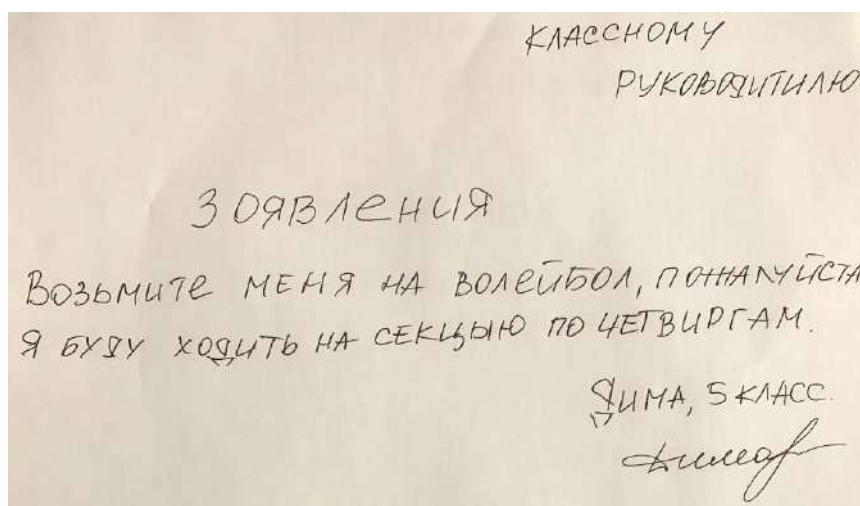 КЛАССНОМУ
РУКОВОДИТИЛЮ
ЗОЯВЛЕНИЯ
ВОЗЬМИТЕ МЕНЯ НА ВОЛЕЙБОЛ, ПОЖАЛУЙСТА
Я БУДУ ХОДИТЬ НА СЕКЦЫЮ ПО ЧЕТВИРГАМ.
ДИМА, 5 КЛАСС.
Дима